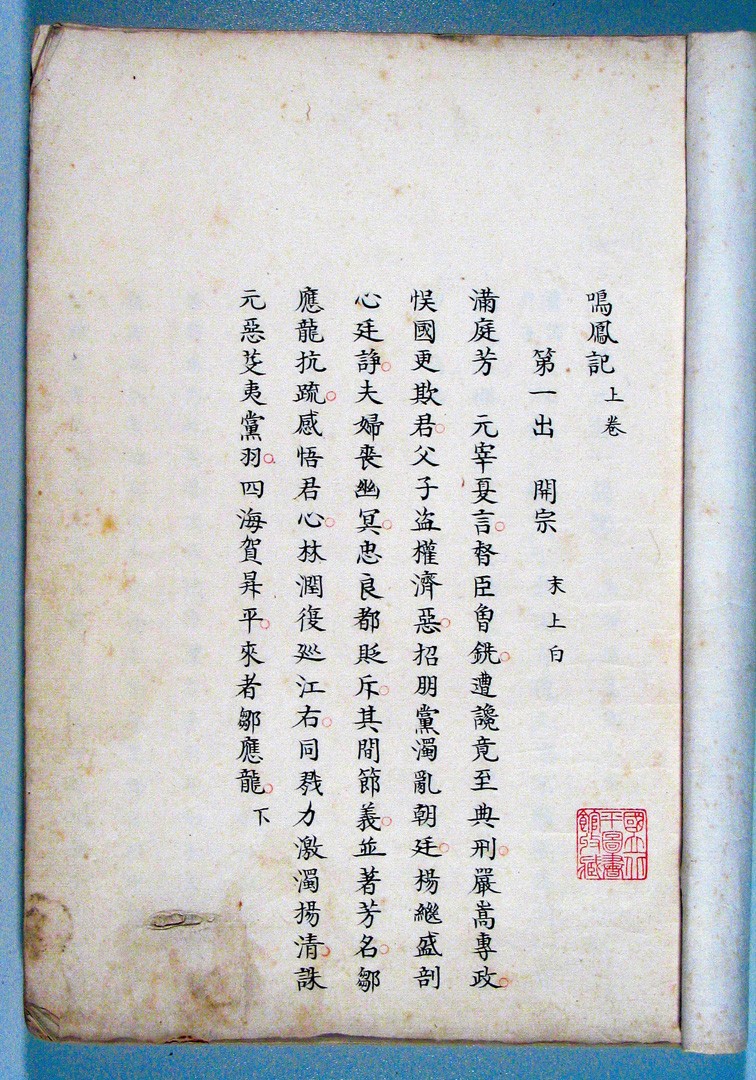 鳴鳳記 上卷
第一出 開宗 末上白
滿庭芳 元宰夏言督臣曾銑遭讒竟至典刑嚴嵩專政
悞國更欺君父子盜權濟惡招朋黨濁亂朝廷楊繼盛剖
心廷諍夫婦喪幽冥忠良都貶斥其間節義並著芳名鄒
應龍抗疏感悟君心林潤復廵江右同戮力激濁揚清誅
元惡芟夷黨羽四海賀昇平來者鄒應龍 下
國立北平圖書館收藏